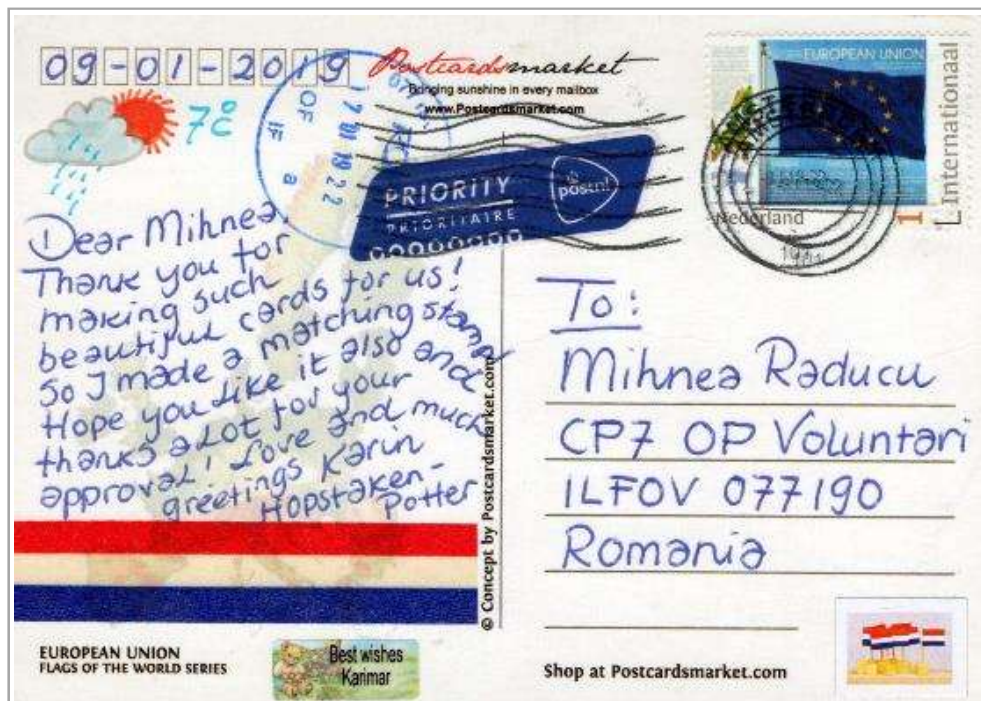 09-01-2019
7°C
Postcardsmarket
Bringing sunshine in every mailbox
www.Postcardsmarket.com
PRIORITY
PRIORITAIRE
postnl
EUROPEAN UNION
Nederland
1
Internationaal
OF IF a
Dear Mihnea,
Thank you for
making such
beautiful cards for us!
So I made a matching stamp
Hope you like it also and
thanks a lot for your
approval! Love and much
greetings Karin
Hopstaken-
Potter
To:
Mihnea Raducu
CP7 OP Voluntari
ILFOV 077190
Romania
© Concept by Postcardsmarket.com
EUROPEAN UNION
FLAGS OF THE WORLD SERIES
Best wishes
Karimar
Shop at Postcardsmarket.com